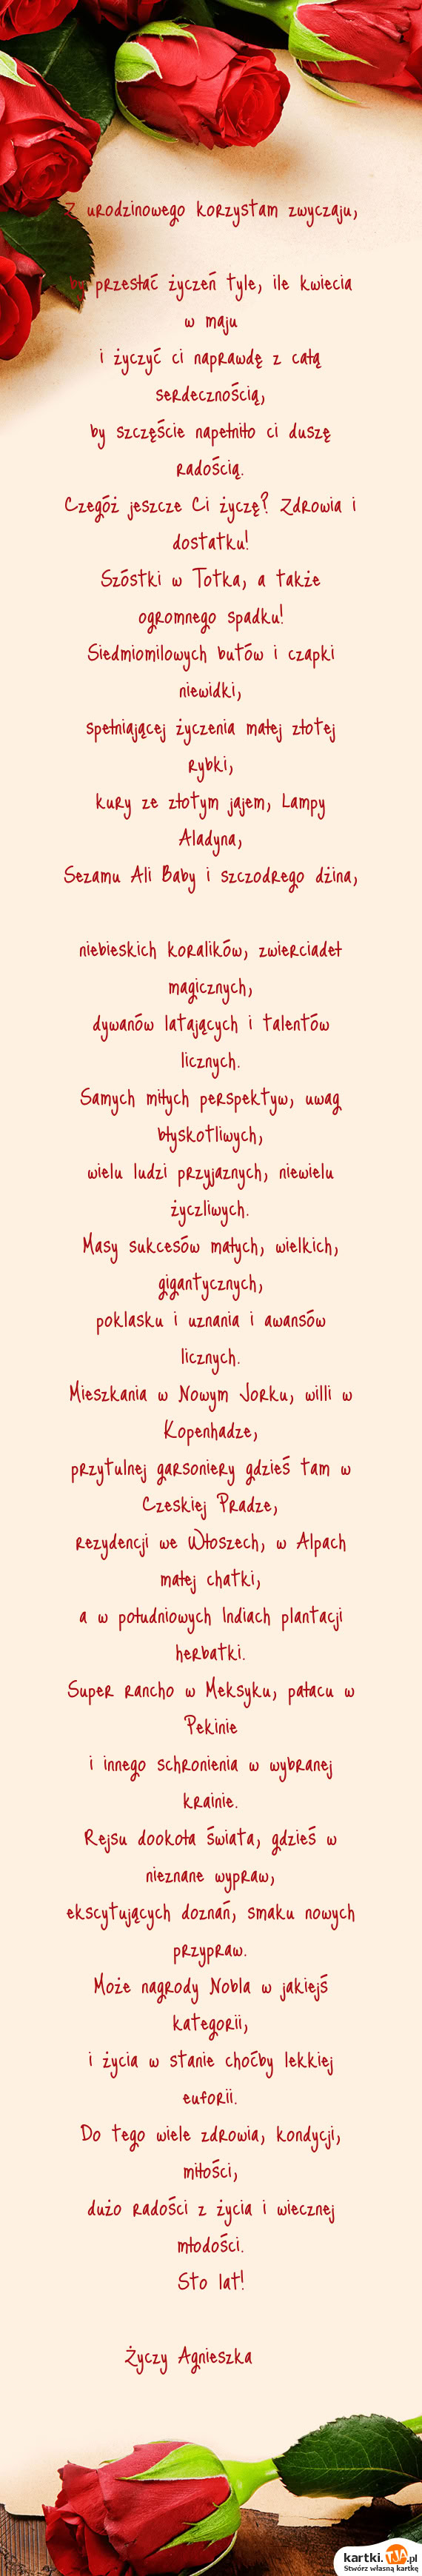 Z urodzinowego korzystam zwyczaju,
by przesłać życzeń tyle, ile kwiecia
w maju
i życzyć ci naprawdę z całą
serdecznością,
by szczęście napełniło ci duszę
radością.
Czegóż jeszcze Ci życzę? Zdrowia i
dostatku!
Szóstki w Totka, a także
ogromnego spadku!
Siedmiomilowych butów i czapki
niewidki,
spełniającej życzenia małej złotej
rybki,
kury ze złotym jajem, Lampy
Aladyna,
Sezamu Ali Baby i szczodrego dżina,
niebieskich koralików, zwierciadeł
magicznych,
dywanów latających i talentów
licznych.
Samych miłych perspektyw, uwag
błyskotliwych,
wielu ludzi przyjaznych, niewielu
życzliwych.
Masy sukcesów małych, wielkich,
gigantycznych,
poklasku i uznania i awansów
licznych.
Mieszkania w Nowym Jorku, willi w
Kopenhadze,
przytulnej garsoniery gdzieś tam w
Czeskiej Pradze,
rezydencji we Włoszech, w Alpach
małej chatki,
a w południowych Indiach plantacji
herbatki.
Super rancho w Meksyku, pałacu w
Pekinie
i innego schronienia w wybranej
krainie.
Rejsu dookoła świata, gdzieś w
nieznane wypraw,
ekscytujących doznań, smaku nowych
przypraw.
Może nagrody Nobla w jakiejś
kategorii,
i życia w stanie choćby lekkiej
euforii.
Do tego wiele zdrowia, kondycji,
miłości,
dużo radości z życia i wiecznej
młodości.
Sto lat!
Życzy Agnieszka
kartki.TJA.pl
Stwórz własną kartkę